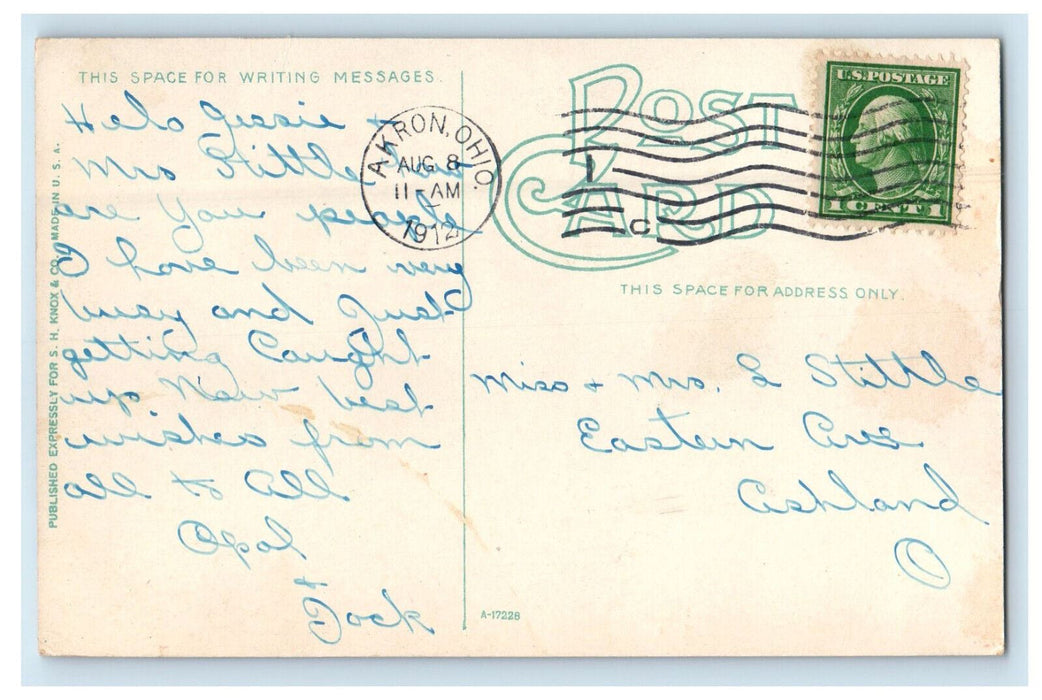 THIS SPACE FOR WRITING MESSAGES.
Helo Jessie +
Mrs Stittle how
are you people
I have been very
busy and Just
getting Caught
up. Now best
wishes from
all to all
Opal
+
Jock
PUBLISHED EXPRESSLY FOR S. H. KNOX & CO. MADE IN U. S. A.
A-17228
AKRON, OHIO.
AUG 8
11-AM
1912
POST
CARD
1
C
U.S. POSTAGE
1 CENT 1
THIS SPACE FOR ADDRESS ONLY.
Miss + Mrs. L Stittle
Eastern Ave
Ashland
O